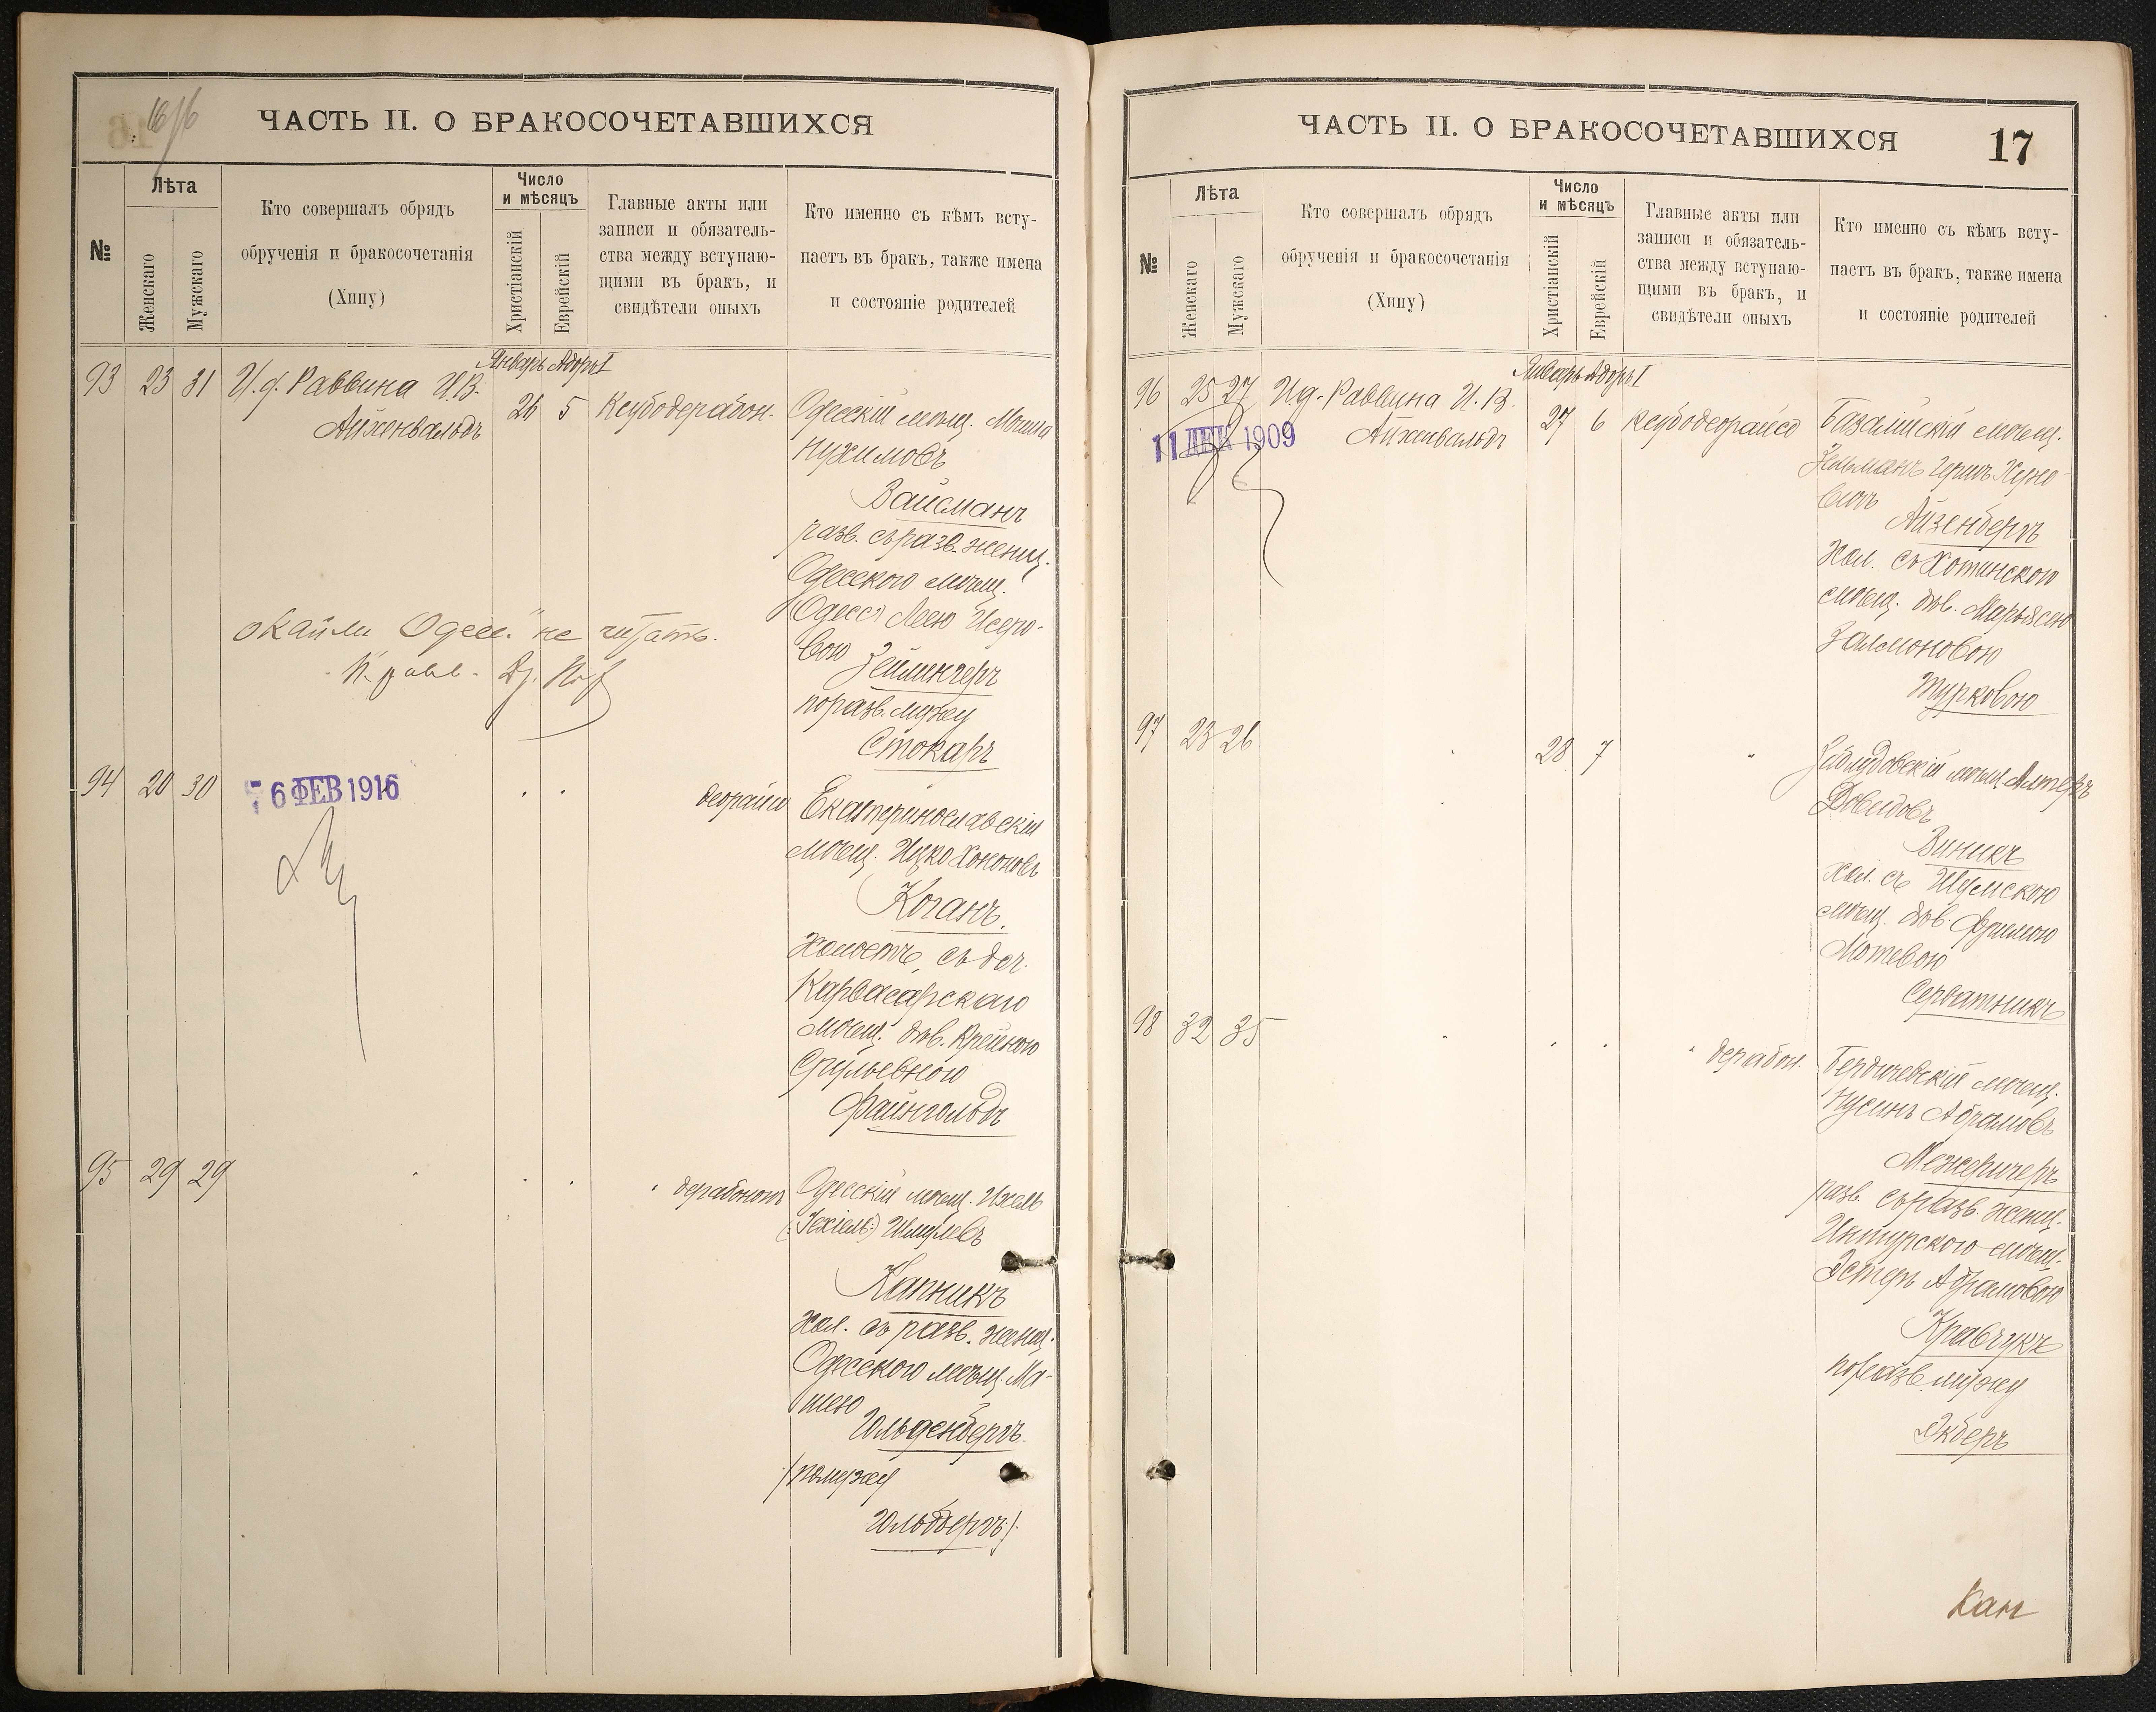 16
ЧАСТЬ II. О БРАКОСОЧЕТАВШИХСЯ
№
Лѣта
Женскаго
Мужскаго
Кто совершалъ обрядъ
обрученія и бракосочетанія
(Хипу)
Число
и мѣсяцъ
Христіанскій
Еврейскій
Главные акты или
записи и обязатель-
ства между вступаю-
щими въ бракъ, и
свидѣтели оныхъ
Кто именно съ кѣмъ всту-
паетъ въ бракъ, также имена
и состояніе родителей
Январь Адоръ I
93 23 31 И.д. Раввина И.В.
Айхенвальдъ
26 5 Ксубодерабон.
Одесскій мѣщ. Мошко
Нухимовъ
Вайсманъ
разв. съ разв. женщ.
Одесского мѣщ.
Одесся Леею Исеро-
вою
Зейлингеръ
по разв. мужу
Стокаръ
Одесс. не читать.
94 20 30
6 ФЕВ 1916
деорайсо
Екатеринославскій
мѣщ. Ицко Хононовъ
Коганъ
холостъ, съ доч.
Карвасарскаго
мѣщ. дѣв. Крейною
Срульевною
Файнгольдъ
95 29 29
дерабонон
Одесскій мѣщ. Ихель
(:Іехіель:) Шмулевъ
Капникъ
хол. съ разв. женщ.
Одесского мѣщ. Ма-
шею
Гольденбергъ
/по мужу
Гольдбергъ/.
ЧАСТЬ II. О БРАКОСОЧЕТАВШИХСЯ
17
№
Лѣта
Женскаго
Мужскаго
Кто совершалъ обрядъ
обрученія и бракосочетанія
(Хипу)
Число
и мѣсяцъ
Христіанскій
Еврейскій
Главные акты или
записи и обязатель-
ства между вступаю-
щими въ бракъ, и
свидѣтели оныхъ
Кто именно съ кѣмъ всту-
паетъ въ бракъ, также имена
и состояніе родителей
Январь Адоръ I
96 25 27 И.д. Раввина И.В.
Айхенвальдъ
27 6 Ксубодеорайсо
11 ДЕК 1909
Базалійскій мѣщ.
Зельманъ Гершъ
вичъ
Айзенбергъ
Хол. съ Хотинскою
мѣщ. дѣв. Марьясею
Залмоновою
Турковою
97 23 26
28 7
Заблудовскій мѣщ. Алтеръ
Довидовъ
Виникъ
хол. съ Шумскою
мѣщ. дѣв. Фримою
Мотевою
Серватникъ
98 32 35
дерабон.
Бердичевскій мѣщ.
Нусинъ Абрамовъ
Межеричеръ
разв. съ разв. женщ.
мѣщ.
Эстеръ Абрамовою
Кравчукъ
по разв. мужу
Экберъ
Кан